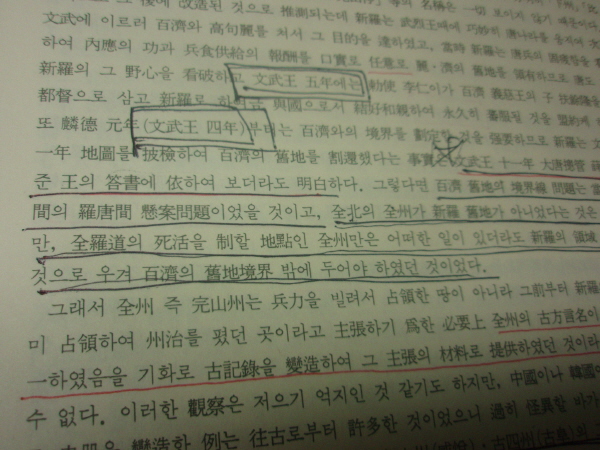 後에 改造된 것으로 推測되는데 新羅는 武烈王때에
文武에 이르러 百濟와 高句麗를 쳐서 그 目的을 達하였고, 當時 新羅는
하여 內應의 功과 兵食供給의 報酬를 口實로 任意로 麗·濟의 舊地를 領有하므로 唐도
新羅의 그 野心을 看破하고 文武王 五年에는 勅使 李仁이가 百濟 義慈王의 子 扶餘隆을
都督으로 삼고 新羅로 하여금 與國으로서 結好和親하여 永久히
또 麟德 元年(文武王 四年)부터는 百濟와의 境界를 劃定할 것을 强要하므로 新羅는 文
一年 地圖를 披檢하여 百濟의 舊地를 割還했다는 事實은 文武王 十一年 大唐總管 薛
준 王의 答書에 依하여 보더라도 明白하다. 그렇다면 百濟 舊地의 境界線 問題는 當
間의 羅唐間 懸案問題이었을 것이고, 全北의 全州가 新羅 舊地가 아니었다는 것은
만, 全羅道의 死活을 制할 地點인 全州만은 어떠한 일이 있더라도 新羅의 領域
것으로 우겨 百濟의 舊地境界 밖에 두어야 하였던 것이었다.
그래서 全州 즉 完山州는 兵力을 빌려서 占領한 땅이 아니라 그前부터 新羅
미 占領하여 州治를 폈던 곳이라고 主張하기 爲한 必要上 全州의 古方言名이
一하였음을 기화로 古記錄을 變造하여 그 主張의 材料로 提供하였던 것이라
수 없다. 이러한 觀察은 저으기 억지인 것 같기도 하지만, 中國이나 韓國
變造한 例는 往古로부터 許多한 것이었으니 過히 怪異할 바가
古四州(古阜)의